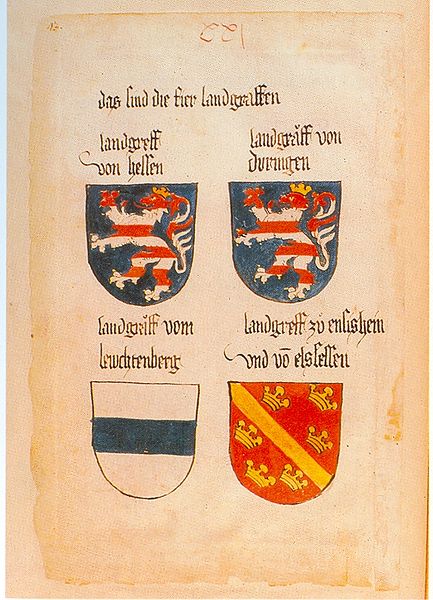 13.
122
das sind die fier landgraffen
landgreff
von hessen
landgräff von
duringen
landgräff vom
lewchtenberg
landgreff zů ensishein
vnd vō elsessen